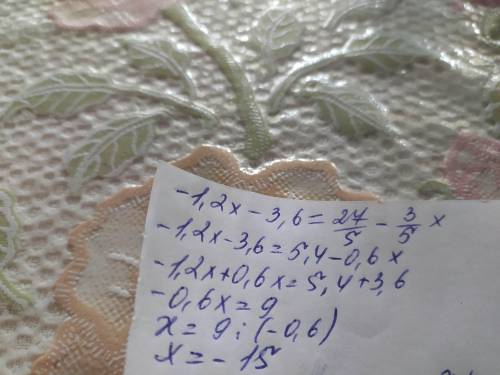 -1,2x-3,6=27/5-3/5x
-1,2x-3,6=5,4-0,6x
-1,2x+0,6x=5,4+3,6
-0,6x=9
x=9:(-0,6)
x=-15